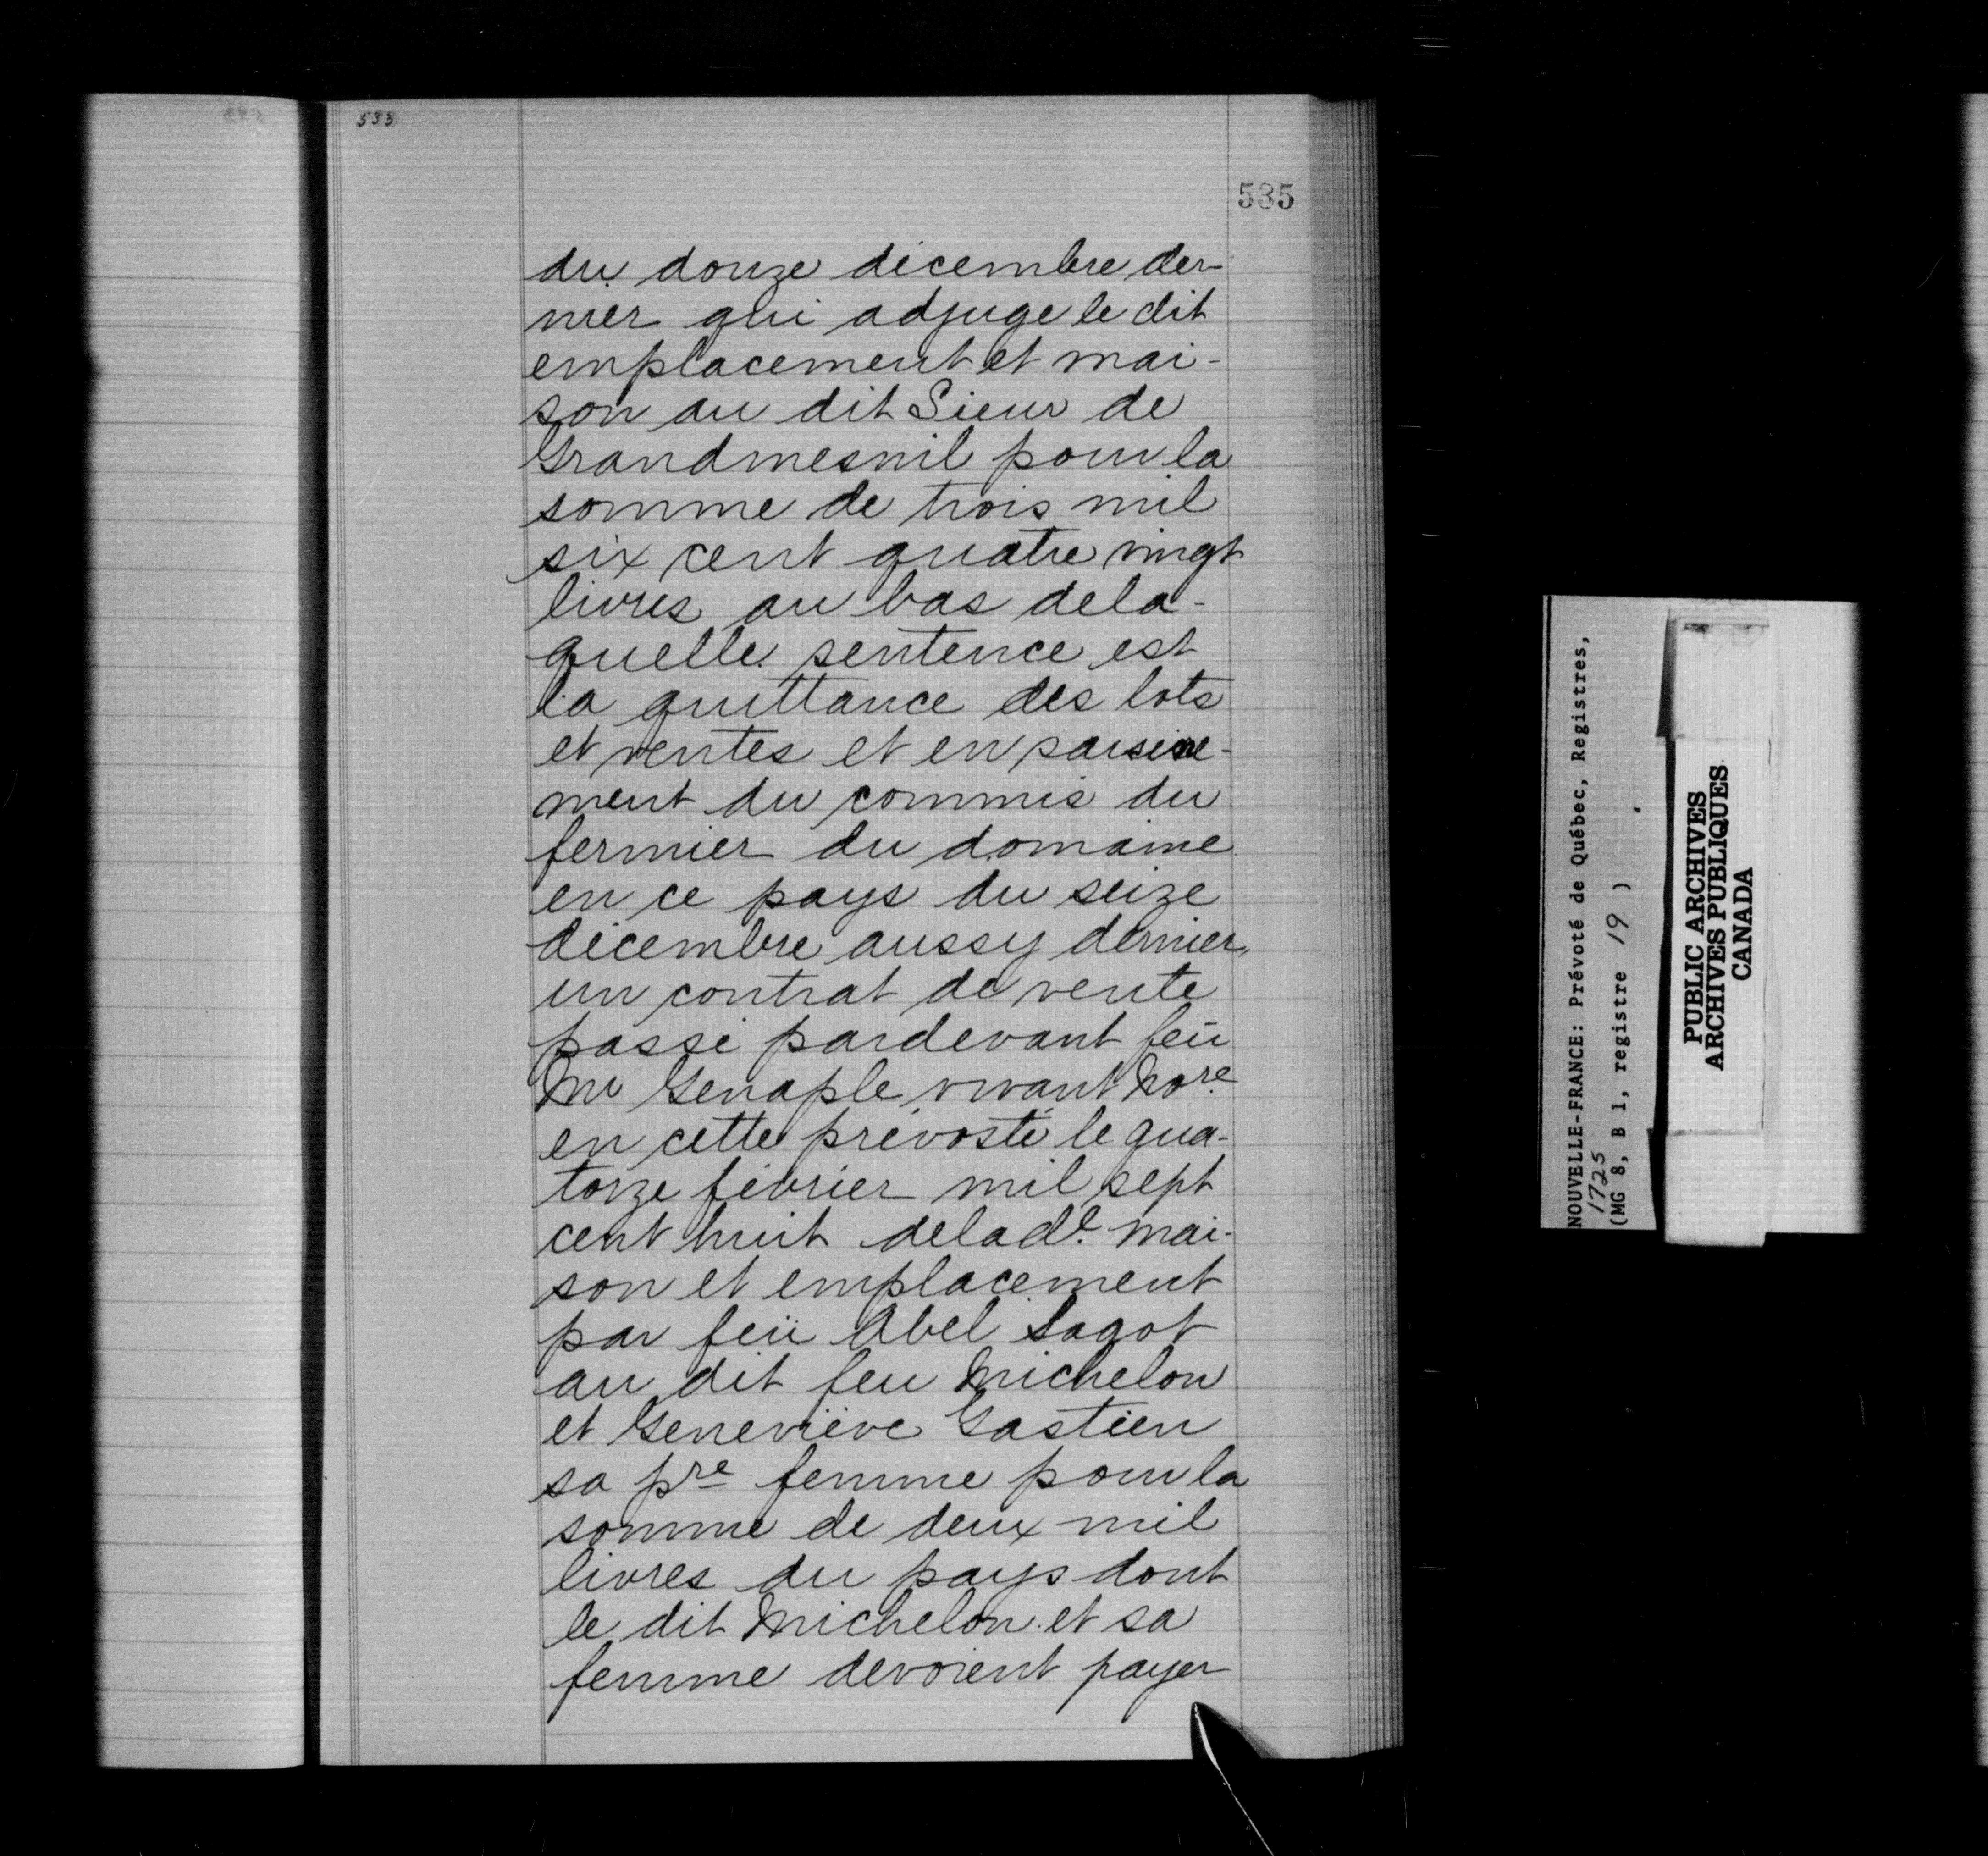 533
535
du douze décembre der-
nier qui adjuge le dit
emplacement et mai-
son au dit Sieur de
Grandmesnil pour la
somme de trois mil
six cent quatre vingt
livres au bas dela-
quelle sentence est
la quittance des lots
et ventes et en saisine-
ment du commis du
fermier du domaine
en ce pays du seize
décembre aussy dernier,
un contrat de vente
passé pardevant feü
Me Genaple vivant Nore
en cette prévosté le qua-
torze février mil sept
cent huit delade. mai-
son et emplacement
par feü Abel Sagot
au dit feu Michelon
et Geneviève Gastien
sa pre femme pour la
somme de deux mil
livres du pays dont
le dit Michelon et sa
femme devoient payer
NOUVELLE-FRANCE: Prévoté de Québec, Registres,
1725
(MG 8, B 1, registre 19 )
PUBLIC ARCHIVES
ARCHIVES PUBLIQUES
CANADA